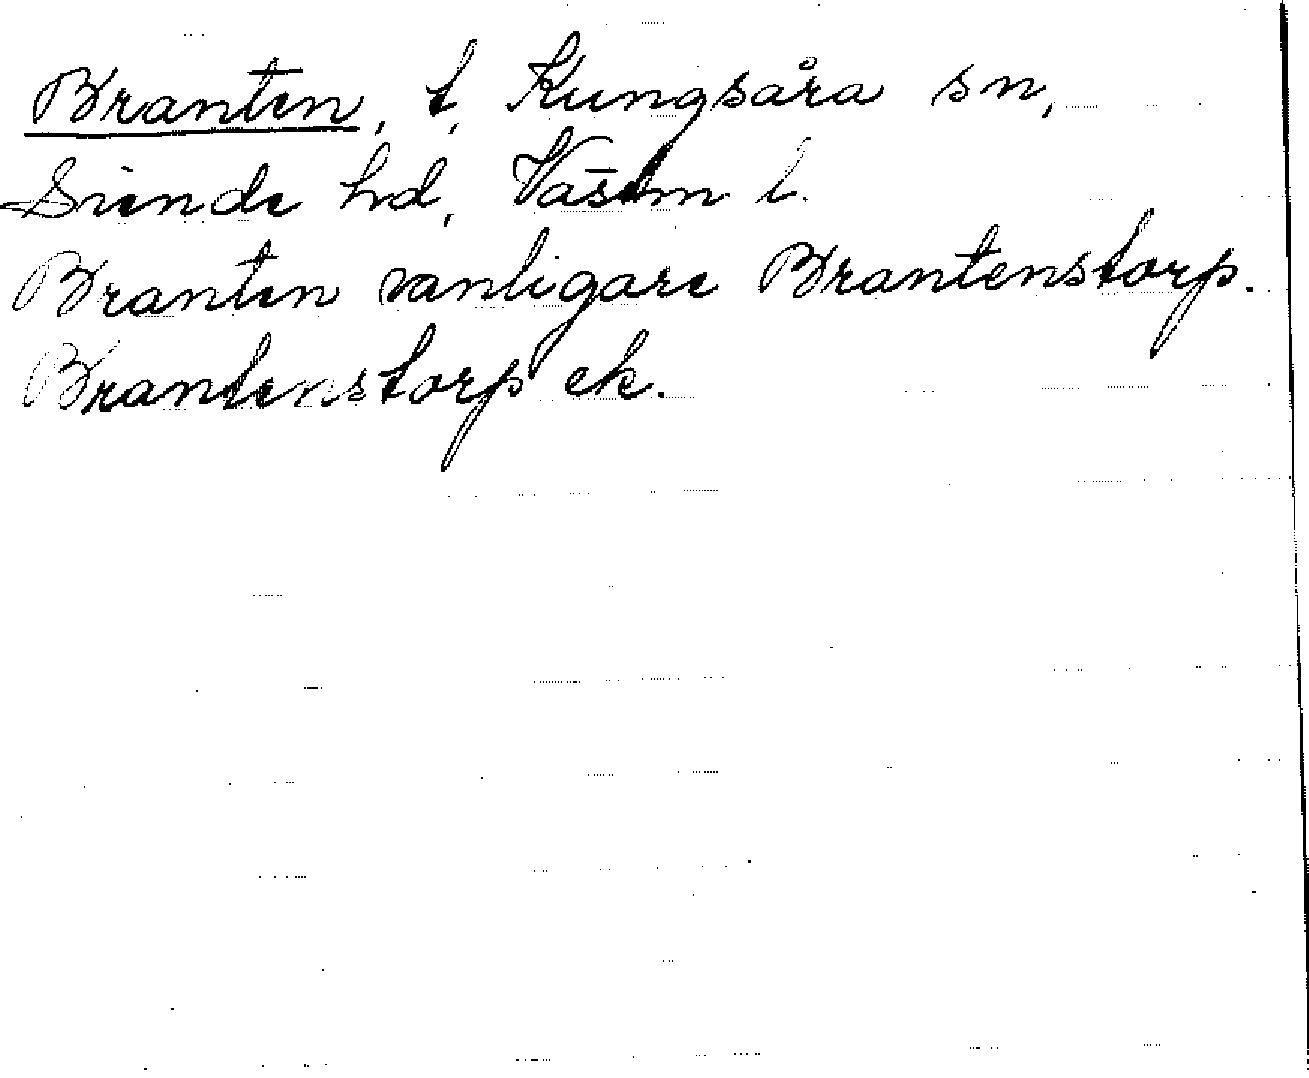 Branten, t, Kungsåra sn,
Siende hd, Västm l.
Branten vanligare Brantenstorp.
Brantenstorp ek.